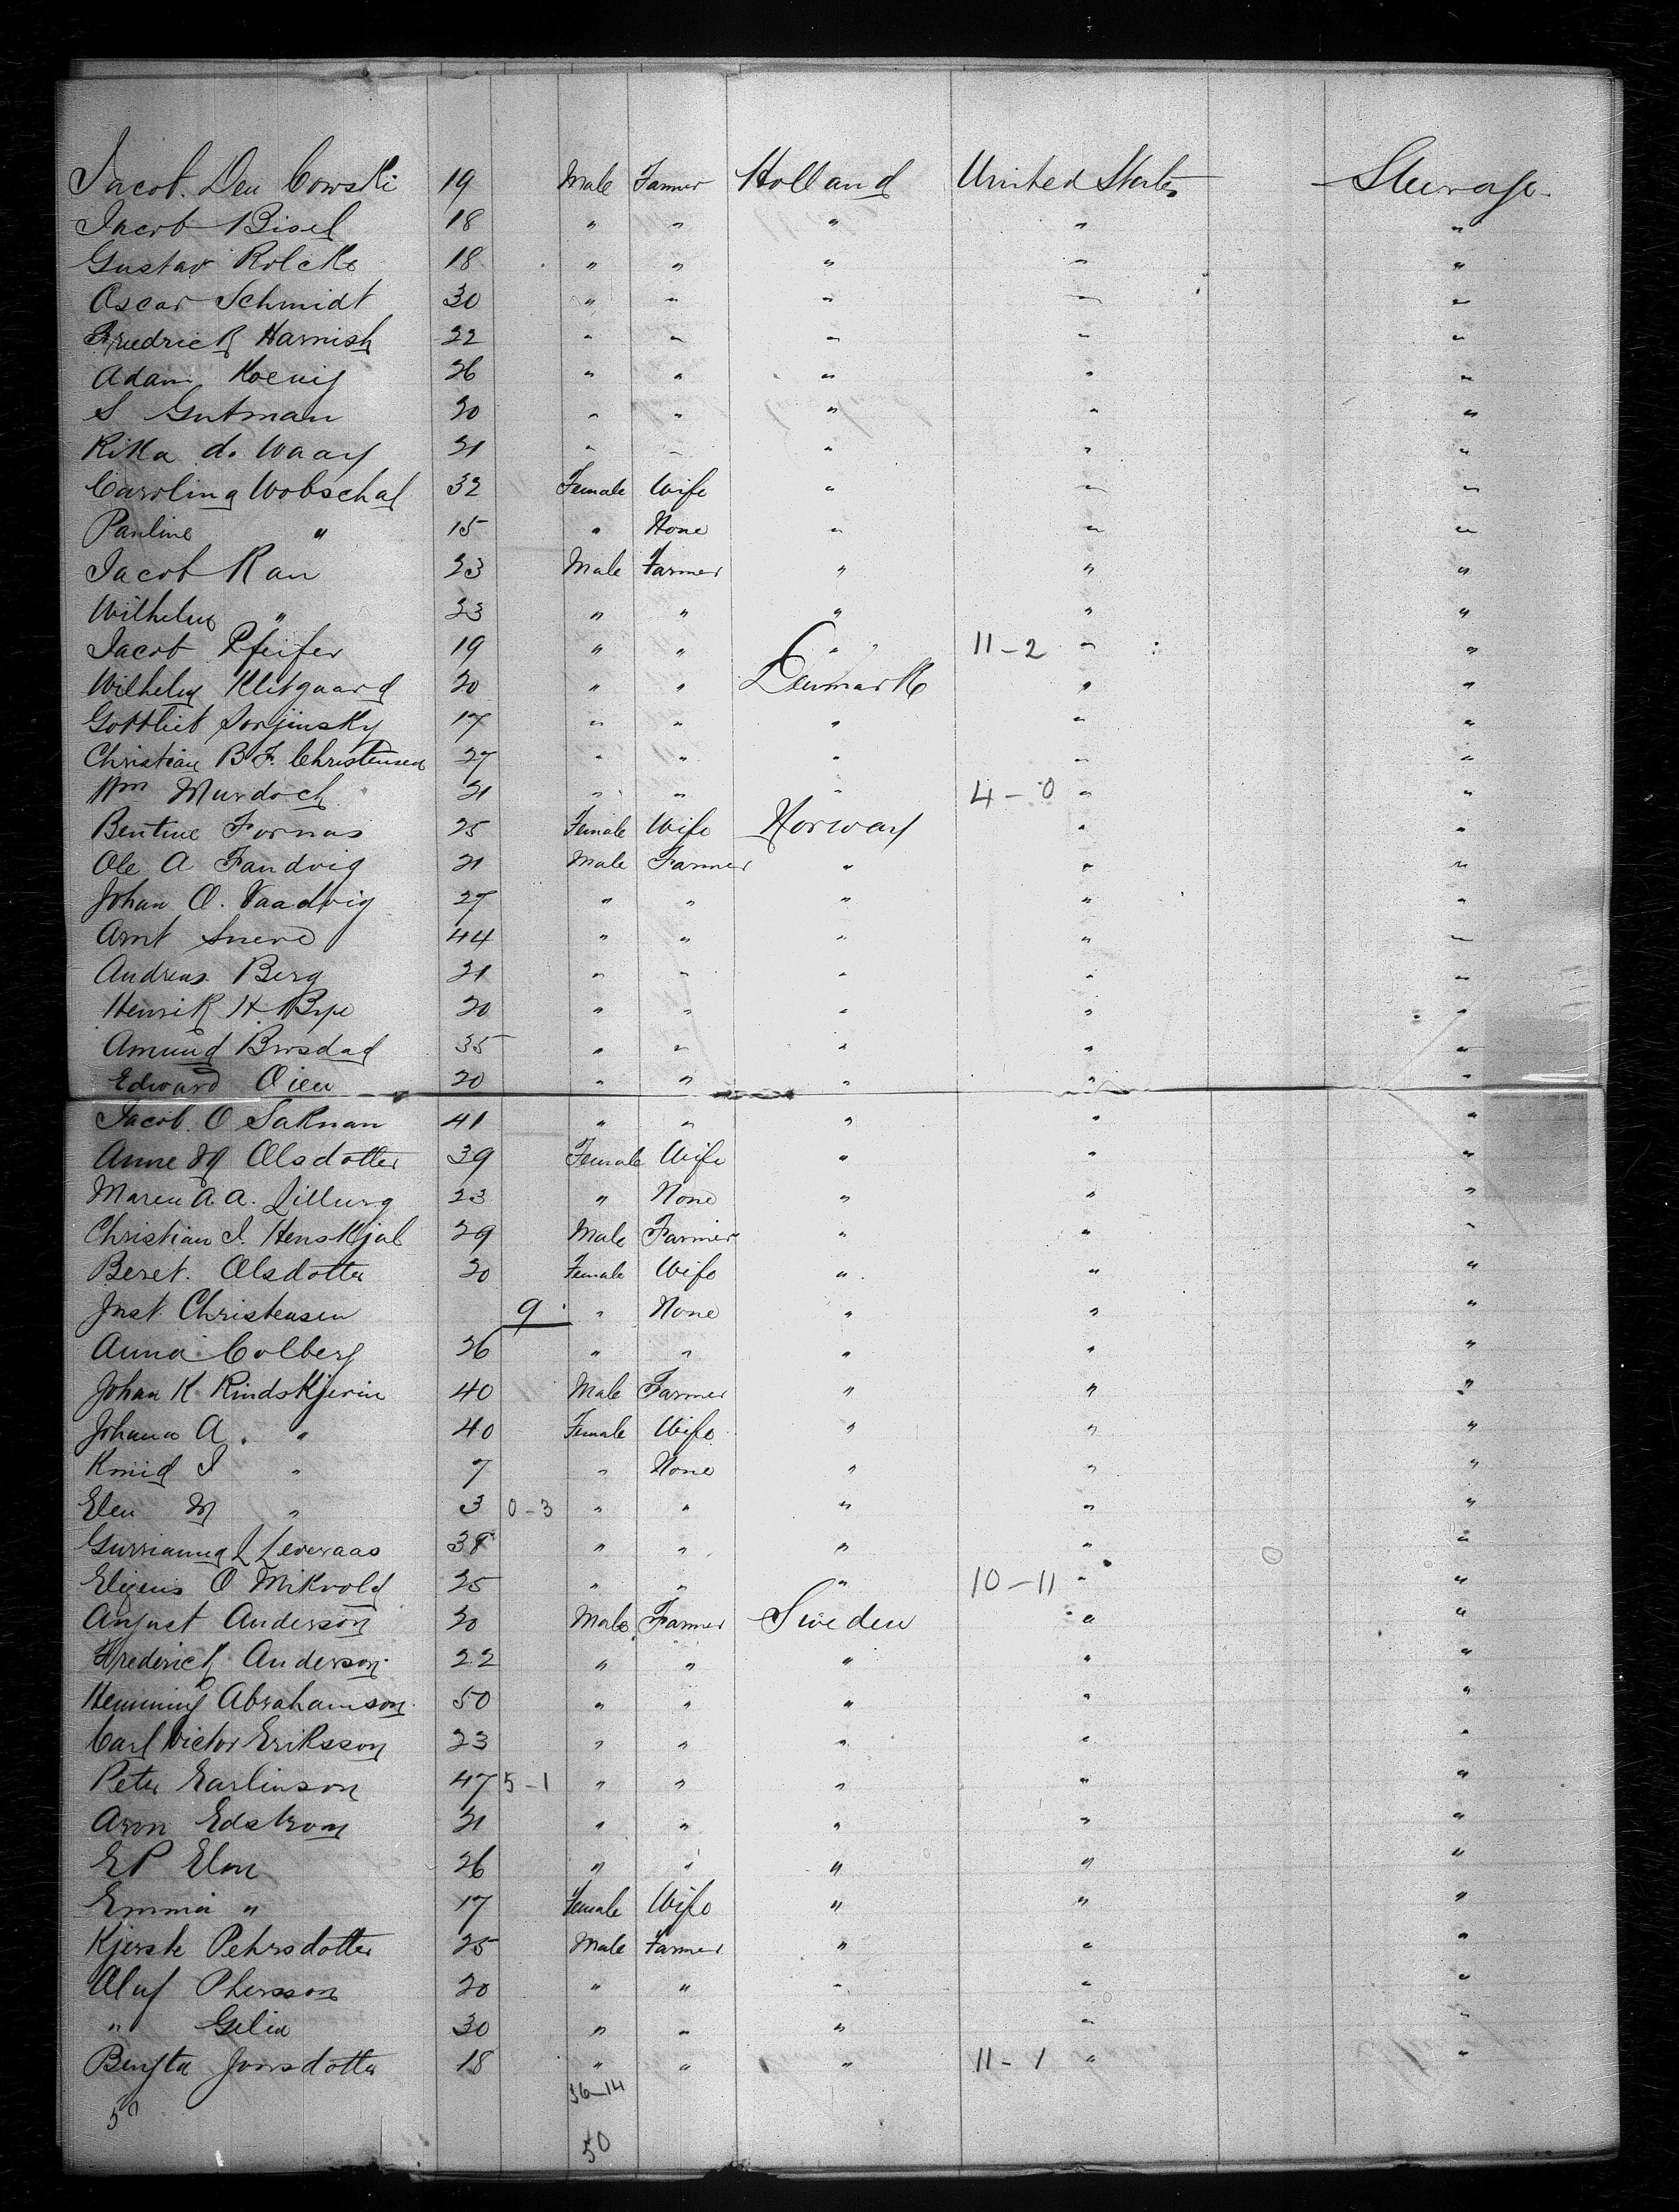 Jacob. Den Cowski 19 Male Farmer Holland United States Steerage.
Jacob Bisel 18 " " " " "
Gustav Rolcke 18 " " " " "
Oscar Schmidt 30 " " " " "
Friedrick Harnish 22 " " " " "
Adam Koenig 26 " " " " "
S Gutman 20 " " " " "
Rika de Waay 21 " " " " "
Caroling Wobschal 32 Female Wife " " "
Pauline " 15 " None " " "
Jacob Rau 23 Male Farmer " " "
Wilhelm " 23 " " " " "
Jacob Pfeifer 19 " " " 11-2 " "
Wilhelm Klitgaard 20 " " Denmark " "
Gottlieb Sorjinsky 17 " " " " "
Christian B F. Christensen 27 " " " " "
Wm Murdoch 21 " " " 4-0 " "
Bentine Fornas 25 Female Wife Norway " "
Ole A Fandvig 21 Male Farmer " " "
Johan O. Vaadvig 27 " " " " "
Arnt Sneve 44 " " " " "
Andreas Berg 21 " " " " "
Henrik H Bye 20 " " " " "
Amund Brosdad 35 " " " " "
Edward Oien 20 " " " " "
Jacob. O Saknan 41 " " " " "
Anne M Olsdotter 39 Female Wife " " "
Maren A. A. Lillurg 23 " None " " "
Christian J. Henskjal 29 Male Farmer " " "
Beret. Olsdotter 20 Female Wife " " "
Just. Christensen 9 " None " " "
Anna Colberg 26 " " " " "
Johan K Kindskjerin 40 Male Farmer " " "
Johana A. " 40 Female Wife " " "
Knud J " 7 " None " " "
Elen M " 3 0-3 " " " " "
38 " " " " "
O Mikvold 25 " " " 10-11 " "
August Anderson 20 Male Farmer Sweden " "
Frederick Anderson 22 " " " " "
Hemming Abrahamson 50 " " " " "
Carl Victor Eriksson 23 " " " " "
Peter Earlinson 47 5-1 " " " " "
Aron Edstrom 21 " " " " "
E P Elm 26 " " " " "
Emma " 17 Female Wife " " "
Kjerste Pehrsdotter 25 Male Farmer " " "
Oluf Phersson 20 " " " " "
" Gelia 30 " " " " "
Bengta Jonsdotter 18 " " " 11-1 " "
50 36-14
50